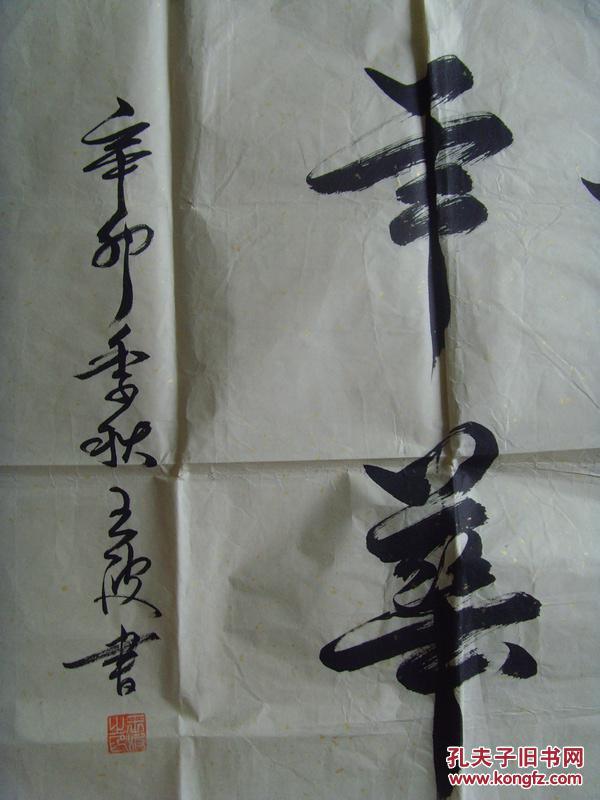 年華
辛卯季秋王波書
王波之印
孔夫子旧书网
www.kongfz.com